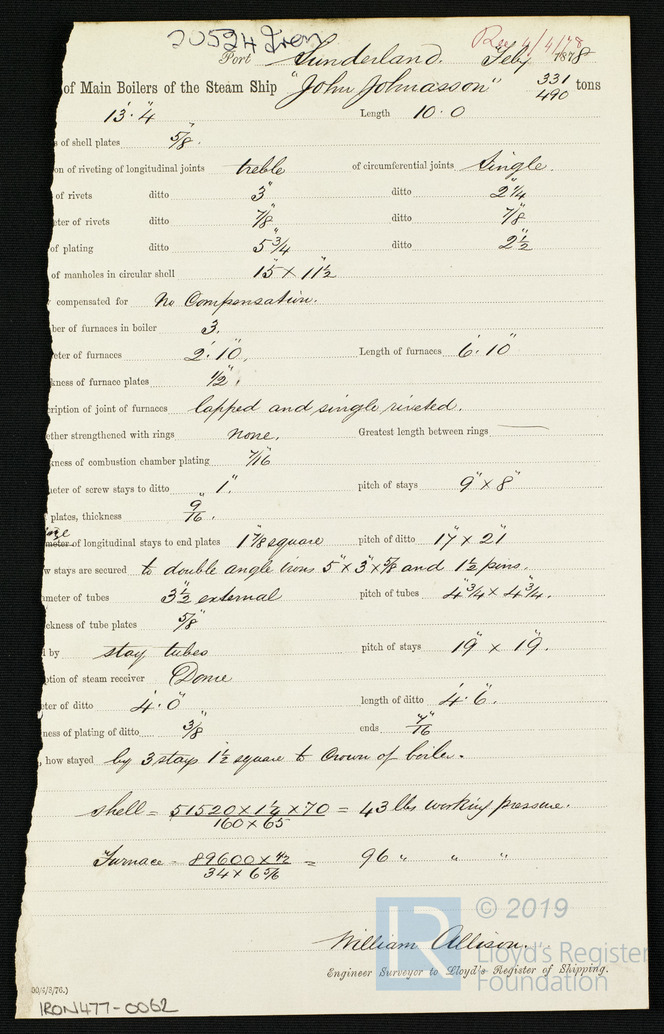 20524 Iron
Rec 4/4/78
Port Sunderland. Feby 1878
of Main Boilers of the Steam Ship "John Johnasson" 331 490 tons
13'.4" Length 10.0
s of shell plates 5/8".
on of riveting of longitudinal joints treble of circumferential joints Single.
of rivets ditto 3" ditto 2 1/4"
eter of rivets ditto 7/8" ditto 7/8"
of plating ditto 5 3/4" ditto 2 1/2"
of manholes in circular shell 15" x 11 1/2"
compensated for No Compensation.
ber of furnaces in boiler 3.
eter of furnaces 2'.10". Length of furnaces 6'.10"
kness of furnace plates 1/2".
ription of joint of furnaces lapped and single riveted.
ether strengthened with rings none. Greatest length between rings
kness of combustion chamber plating 7/16"
meter of screw stays to ditto 1". pitch of stays 9" x 8"
plates, thickness 9/16".
meter of longitudinal stays to end plates 1 7/8" square pitch of ditto 17" x 21"
w stays are secured to double angle irons 5" x 3" x 5/8" and 1 1/2" pins.
ameter of tubes 3 1/2" external pitch of tubes 4 3/4" x 4 3/4".
ckness of tube plates 5/8"
d by stay tubes pitch of stays 19" x 19".
ption of steam receiver Dome
eter of ditto 4'.0" length of ditto 4'.6".
ness of plating of ditto 3/8" ends 7/16"
how stayed by 3 stays 1 1/2" square to Crown of boiler.
Shell = 51520 x 1 1/4 x 70 / 160 x 65 = 43 lbs working pressure.
Furnace = 89600 x 1/2 / 34 x 6 5/6 = 96 " " "
William Allison.
Engineer Surveyor to Lloyd's Register of Shipping.
© 2019
LR Lloyd's Register
Foundation
00/6/3/76.)
IRON477-0062